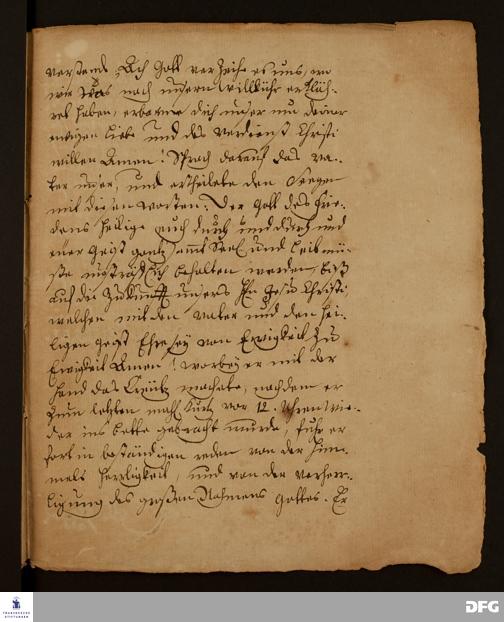 verstand. Ach Gott verzeihe es uns, wo
wir was nach unsern Willkühr erklüh-
ret haben, erbarme dich unser um deiner
ewigen Liebe und des Verdienst Christi
willen Amen! Sprach darauf das Va-
ter unser, und ertheilete den Seegen
mit diesen Worten: Der Gott des Frie-
dens heilige euch durch und durch und
euer Geist gantz samt Seel und Leib mü-
ße unsträflich behalten werden, biß
auf die Zukunfft unsers Hn Jesu Christi,
welchen mit den Vater und den hei-
ligen Geist Ehre sey von Ewigkeit zu
Ewigkeit Amen! worbey er mit der
Hand das Creutz machete, nachdem er
zum letzten mahl kurtz vor 12. Uhren wie-
der ins Bette gebracht wurde, fuhr er
fort in beständigen reden von der Him-
mels Herrligkeit und von der Verherr-
ligung des großen Nahmens Gottes. Er
FRANCKESCHE
STIFTUNGEN
DFG